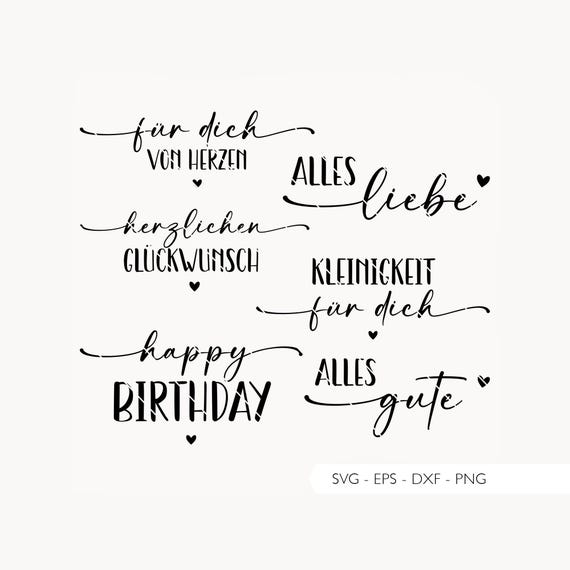 für dich
VON HERZEN
ALLES
liebe
herzlichen
GLÜCKWUNSCH
KLEINIGKEIT
für dich
happy
BIRTHDAY
ALLES
gute
SVG - EPS - DXF - PNG